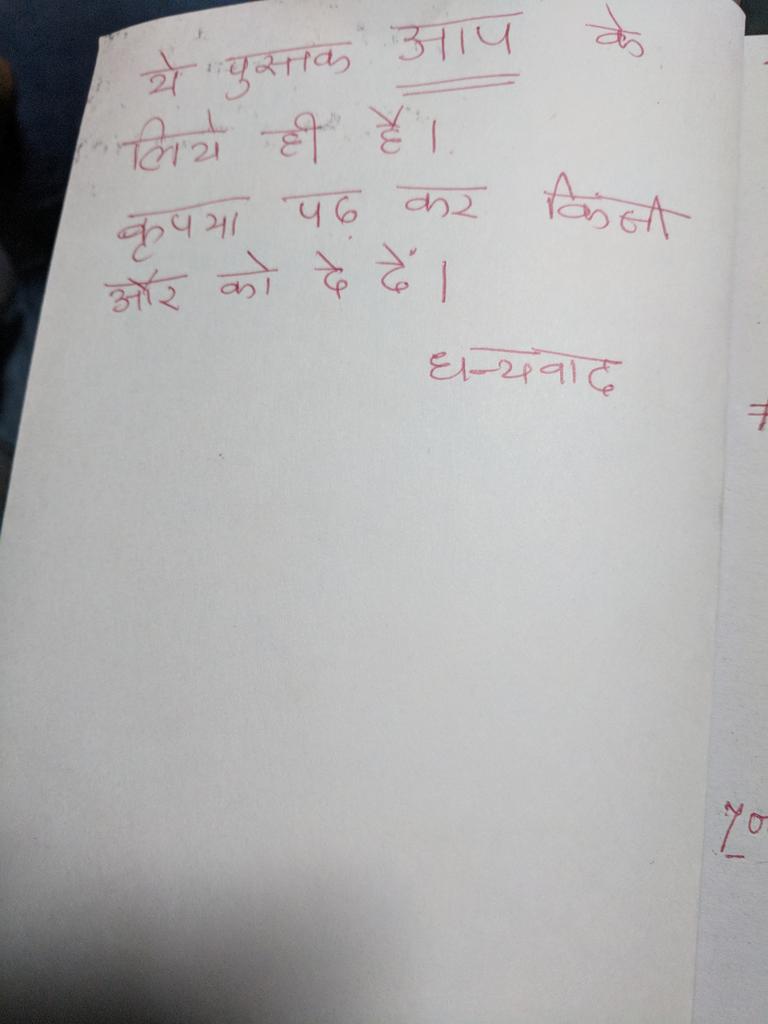 ये पुस्तक आप के
लिये ही है।
कृपया पढ़ कर किसी
और को दे दें।
धन्यवाद